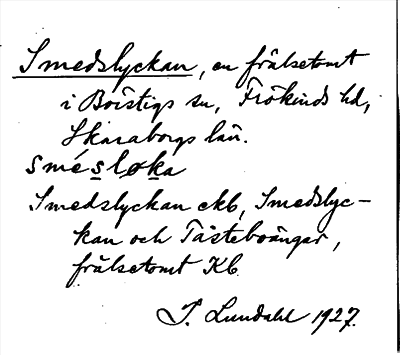 Smedslyckan, en frälsetomt
i Börstigs sn, Frökinds hd,
Skaraborgs län.
smésløka
Smedslyckan ekb, Smedslyc-
kan och Tåsteboängar,
frälsetomt Kb
I. Lundahl 1927.